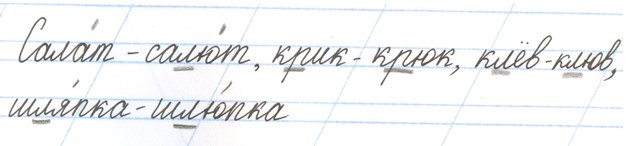 Сала́т - салю́т, крик - крюк, клёв - клюв,
шля́пка - шлю́пка